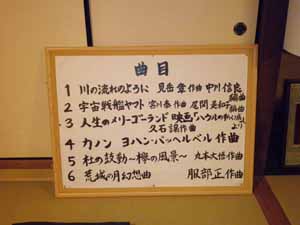 曲目
1 川の流れのように 見岳章作曲 中川信良
編曲
2 宇宙戦艦ヤマト 宮川泰作曲 尾関美和子
編曲
3 人生のメリーゴーランド 映画「ハウルの動く城」
久石譲作曲 より
4 カノン ヨハン・パッヘルベル 作曲
5 杜の鼓動〜欅の風景〜 丸本大悟作曲
6 荒城の月幻想曲 服部正作曲